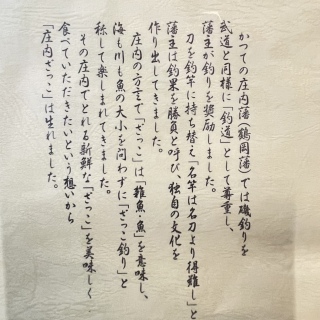 かつての庄内藩(鶴岡藩)では磯釣りを
武道と同様に「釣道」として尊重し、
藩主が釣りを奨励しました。
刀を釣竿に持ち替え「名竿は名刀より得難し」と
藩主は釣果を勝負と呼び、独自の文化を
作り出してきました。
庄内の方言で「ざっこ」は「雑魚・魚」を意味し、
海も川も魚の大小を問わずに「ざっこ釣り」と
称して楽しまれてきました。
その庄内でとれる新鮮な「ざっこ」を美味しく
食べていただきたいという想いから
「庄内ざっこ」は生れました。